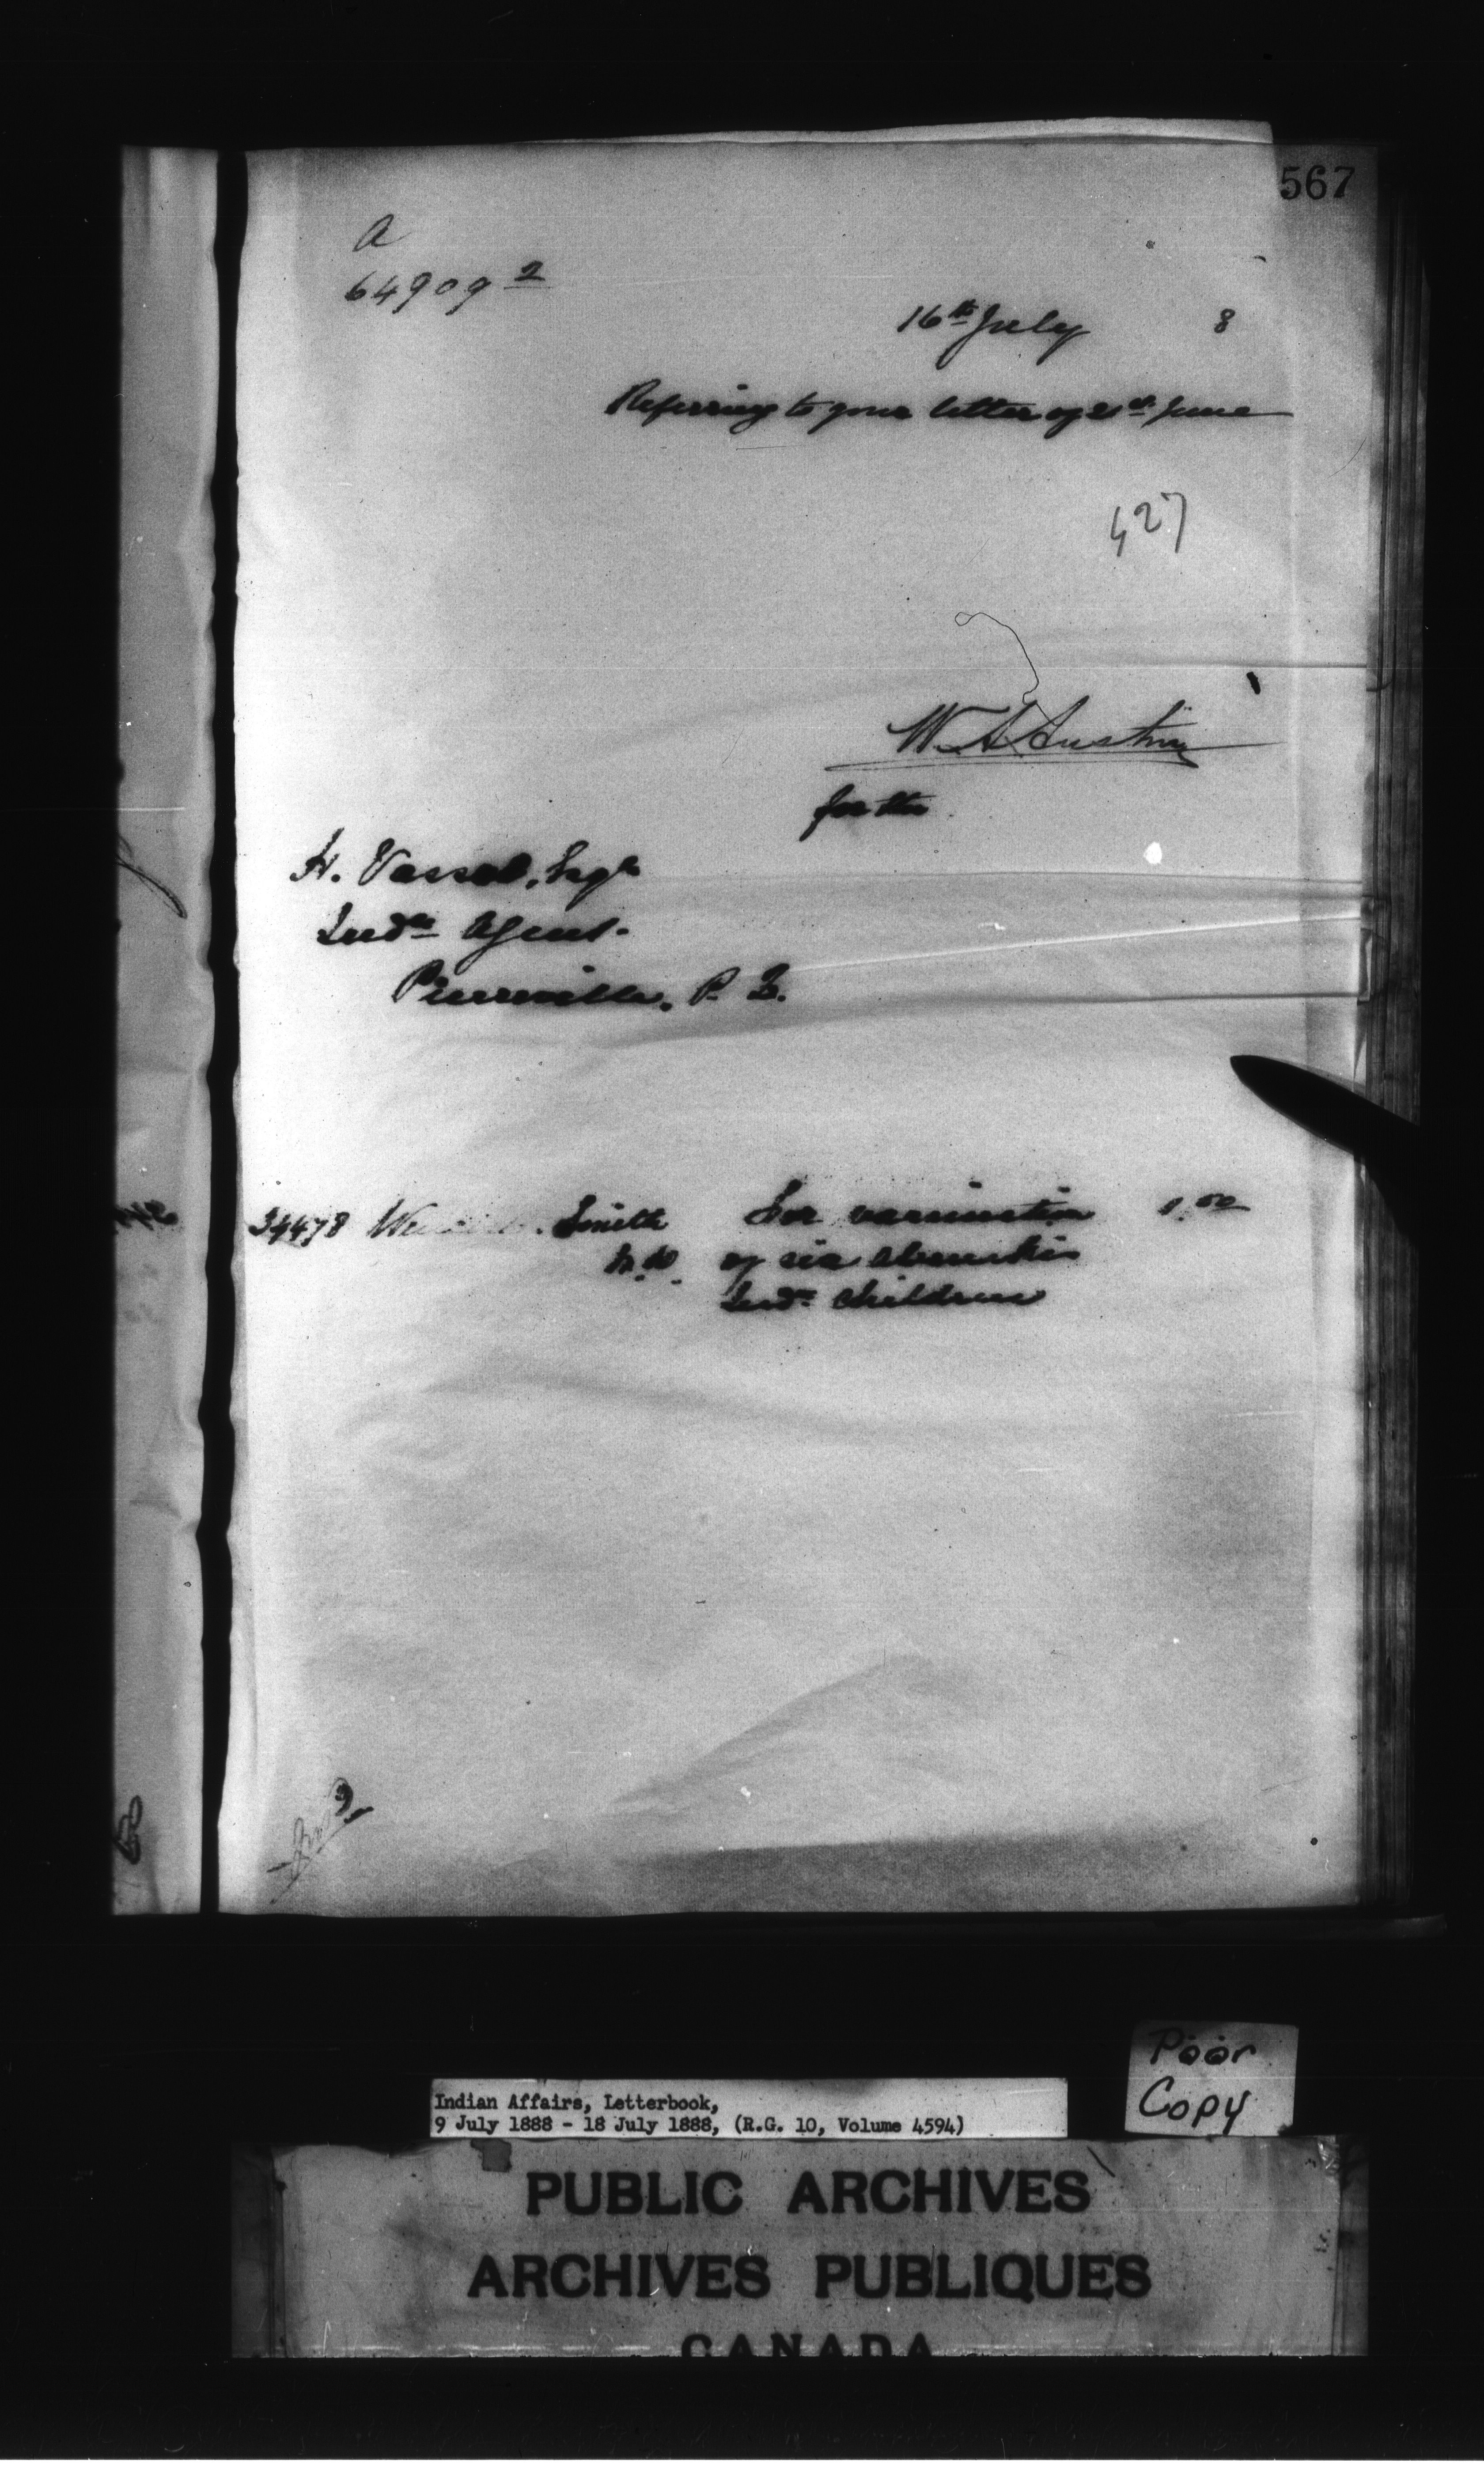 567
a
64909 2
16th July 8
Referring to your letter of 21st June
427
W. A. Austin
for the
H. Vassal, Esqr
Indn Agent.
Pierreville, P. Q.
34478 Smith For vaccination 1.50
M.D. of six Abenakis
Indn children
Indian Affairs, Letterbook,
9 July 1888 - 18 July 1888, (R.G. 10, Volume 4594)
Poor
Copy
PUBLIC ARCHIVES
ARCHIVES PUBLIQUES
CANADA